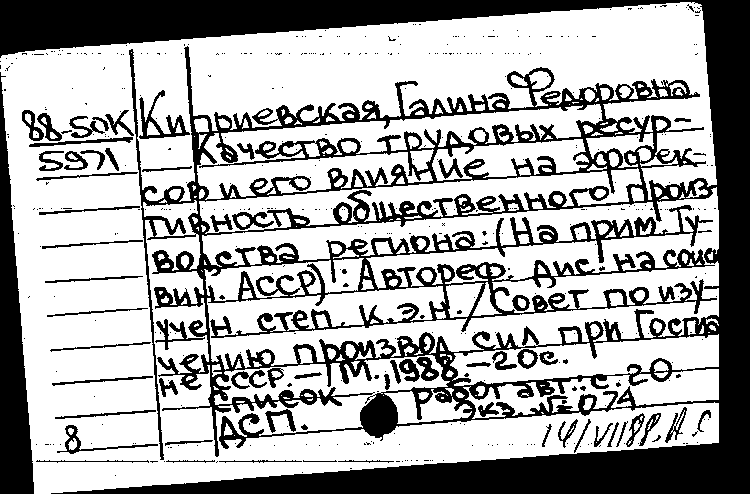 88-50К Киприевская, Галина Федоровна.
5971 Качество трудовых ресур-
сов и его влияние на эффек-
тивность общественного произ-
водства региона: (На прим. Ту-
вин. АССР): Автореф. дис. на соиск
учен. степ. к.э.н. / Совет по изу-
чению производ. сил при Госпла
не СССР. – М., 1988. – 20 с.
Список работ авт.: с. 20.
ДСП. Экз. № 074
8 14/VII 88. А.С